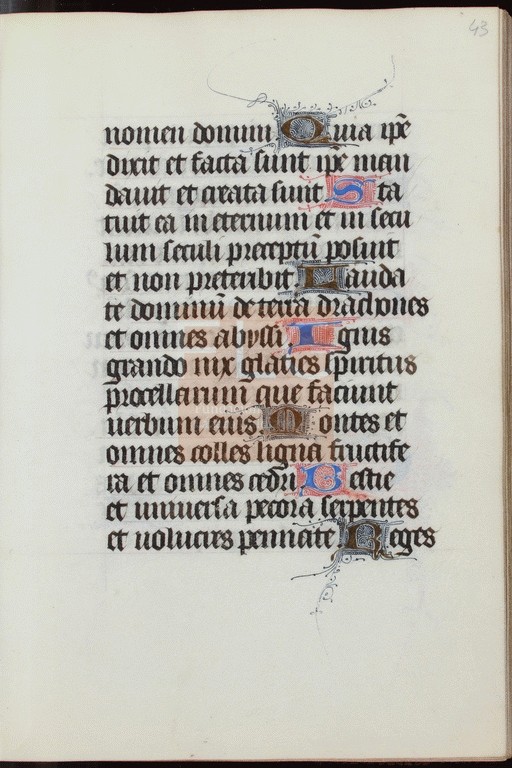 43
nomen domini Quia ip̄e
dixit et facta sunt ip̄e man
dauit et creata sunt Sta
tuit ea in eternum et in secu
lum seculi preceptū posuit
et non preteribit Lauda
te dominū de terra drachones
et omnes abyssi Ignis
grando nix glacies spiritus
procellarum que faciunt
uerbum eius Montes et
omnes colles ligna fructife
ra et omnes cedri Bestie
et uniuersa pecora serpentes
et uolucres pennate Reges